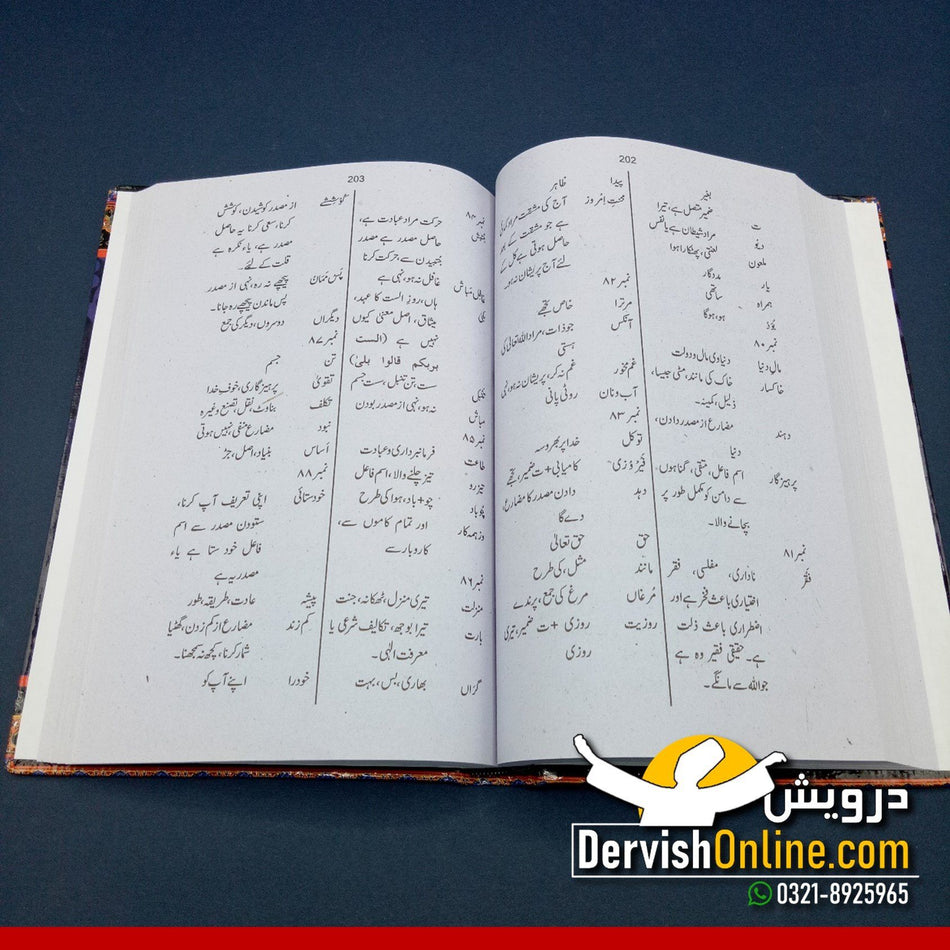 202
بغیر
ت ضمیر متصل ہے، تیرا
دیو مراد شیطان ہے یا نفس
ملعون لعنتی، پھٹکارا ہوا
یار مددگار
ہمراہ ساتھی
بُوَدْ ہو، ہوگا
نمبر ۸۰
مالِ دنیا دنیاوی مال و دولت
خاکسار خاک کی مانند، مٹی جیسا،
ذلیل، کمینہ۔
دہند مضارع از مصدر دادن،
دنیا
پرہیزگار اسم فاعل، متقی، گناہوں
سے دامن کو مکمل طور پر
بچانے والا۔
نمبر ۸۱
فقر ناداری، مفلسی، فقر
اختیاری باعث فخر ہے اور
اضطراری باعث ذلت
ہے۔ حقیقی فقیر وہ ہے
جو اللہ سے مانگے۔
پیدا ظاہر
محنت امروز آج کی مشقت مراد دنیا کی
ہے جو مشقت کے بعد
حاصل ہوتی ہے کل کے
لئے آج پریشان نہ ہو۔
نمبر ۸۲
مرترا خاص تجھے
آنکس جو ذات، مراد اللہ تعالیٰ کی
ہستی
غم مخور غم نہ کر، پریشان نہ ہو، نہی
آب و نان روٹی پانی
نمبر ۸۳
توکل خدا پر بھروسہ
فَیْرُوْزِی کامیابی + ت ضمیر، تجھے
دہد دادن مصدر کا مضارع،
دے گا
حق حق تعالیٰ
مانند مثل، کی طرح
مُرغاں مرغ کی جمع، پرندے
روزیت روزی + ت ضمیر، تیری
روزی
203
نمبر ۸۴
بجنبش حرکت مراد عبادت ہے،
حاصل مصدر ہے مصدر
جنبیدن سے، حرکت کرنا
غافل نہ ہو، نہی ہے
بلیٰ ہاں، روزِ الست کا عہد،
میثاق، اصل معنی کیوں
نہیں ہے (الست
بربکم قالوا بلیٰ)
سست، تن تنبل، سست جسم
مباش نہ ہو، نہی از مصدر بودن
نمبر ۸۵
طاعت فرمانبرداری و عبادت
تیزرو تیز چلنے والا، اسم فاعل
چو باد چو + باد، ہوا کی طرح
وز ہمہ کار اور تمام کاموں سے،
کاروبار سے
نمبر ۸۶
منزلت تیری منزل، ٹھکانہ، جنت
بارت تیرا بوجھ، تکالیف شرعی یا
معرفت الٰہی۔
گراں بھاری، بس، بہت
کوششے از مصدر کوشیدن، کوشش
کرنا، سعی کرنا یہ حاصل
مصدر ہے، یاء نکرہ ہے
قلت کے لئے۔
پس ممان پیچھے نہ رہ، نہی از مصدر
پس ماندن پیچھے رہ جانا۔
دیگراں دوسروں، دیگر کی جمع
نمبر ۸۷
تن جسم
تقویٰ پرہیزگاری، خوف خدا
تکلف بناوٹ، نقل، تصنع وغیرہ
نبود مضارع منفی، نہیں ہوتی
اَساس بنیاد، اصل، جڑ
نمبر ۸۸
خودستائی اپنی تعریف آپ کرنا،
ستودن مصدر سے اسم
فاعل خود ستا ہے یاء
مصدریہ ہے
پیشہ عادت، طریقہ، طور
کم زند مضارع از کم زدن، گھٹیا
شمار کرنا، کچھ نہ سمجھنا۔
خودرا اپنے آپ کو
درویش
DervishOnline.com
0321-8925965